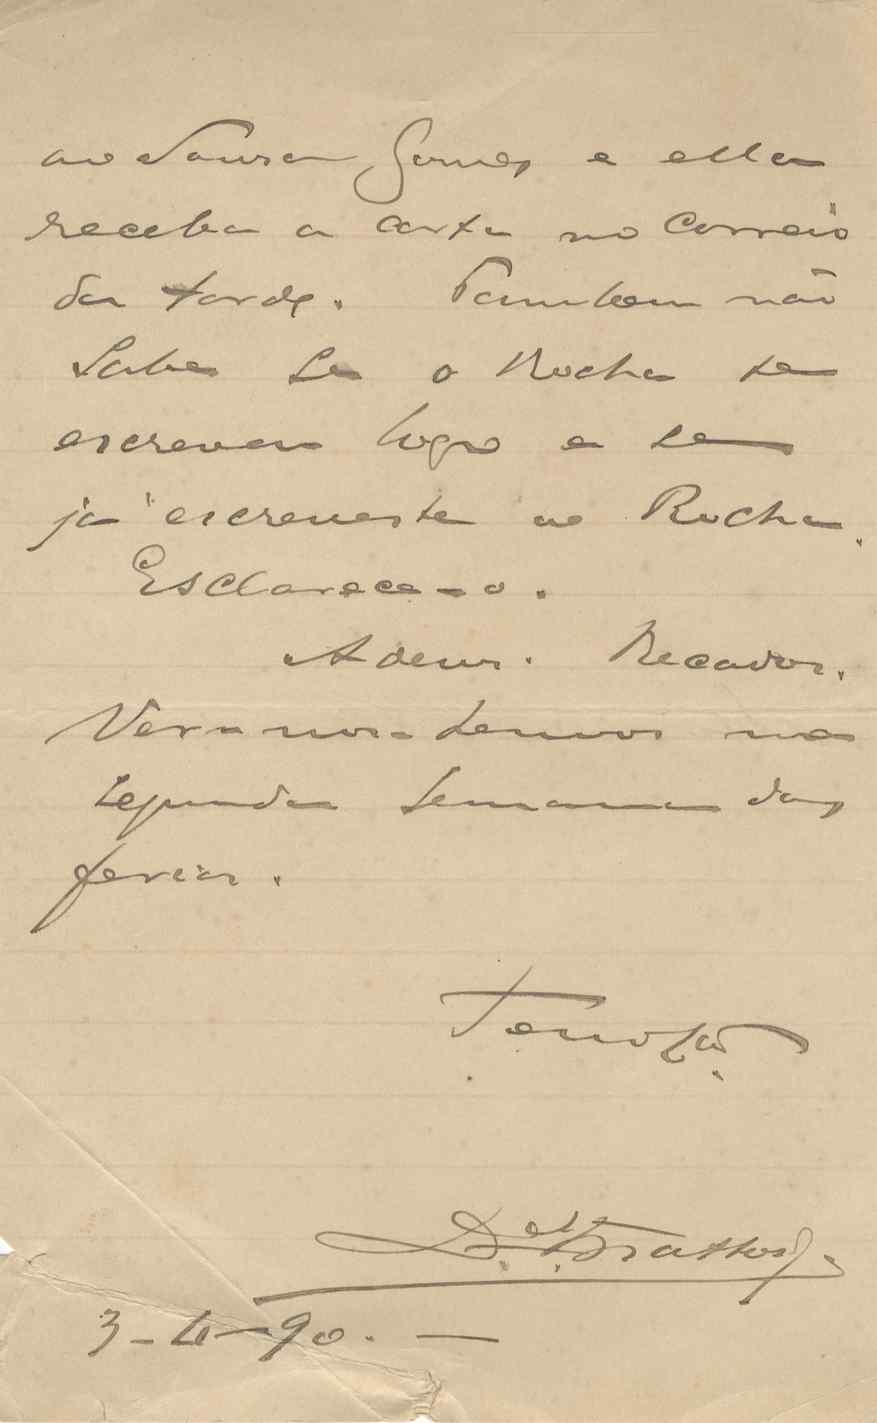 ao Souza Gomes e ella
receba a carta no Correio
da tarde. Tambem não
sabe se o Rocha te
escreveu logo e se
já escreveste ao Rocha.
Esclarece-o.
Adeus. Recados.
Ver-nos-hemos na
segunda semana das
ferias.
Teu
3-4-90. —